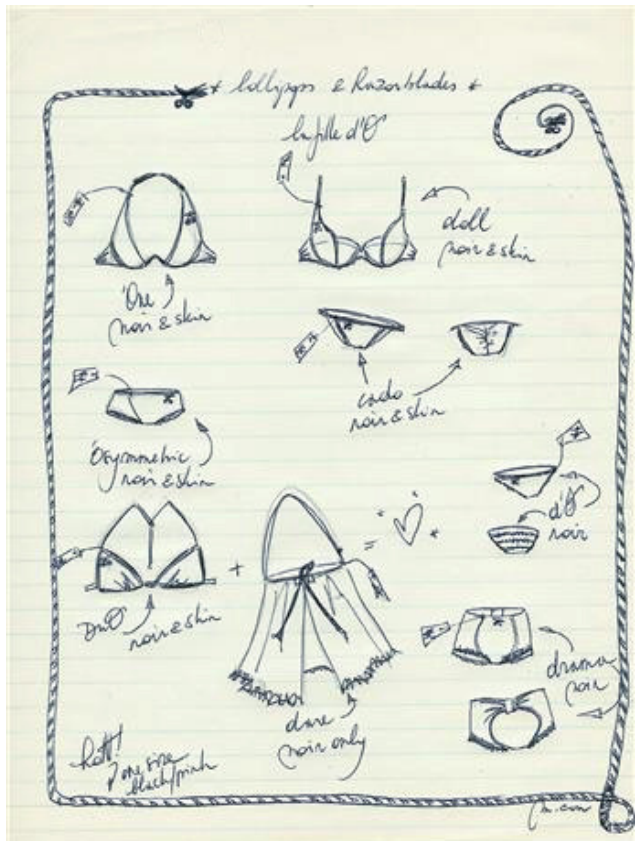 * Lollipops & Razorblades *
la fille d'O
doll
noir & skin
One
noir & skin
cado
noir & skin
Asymmetric
noir & skin
d'O
noir
DnO
noir & skin
+
=
drama
noir
dare
noir only
one size
black/pink